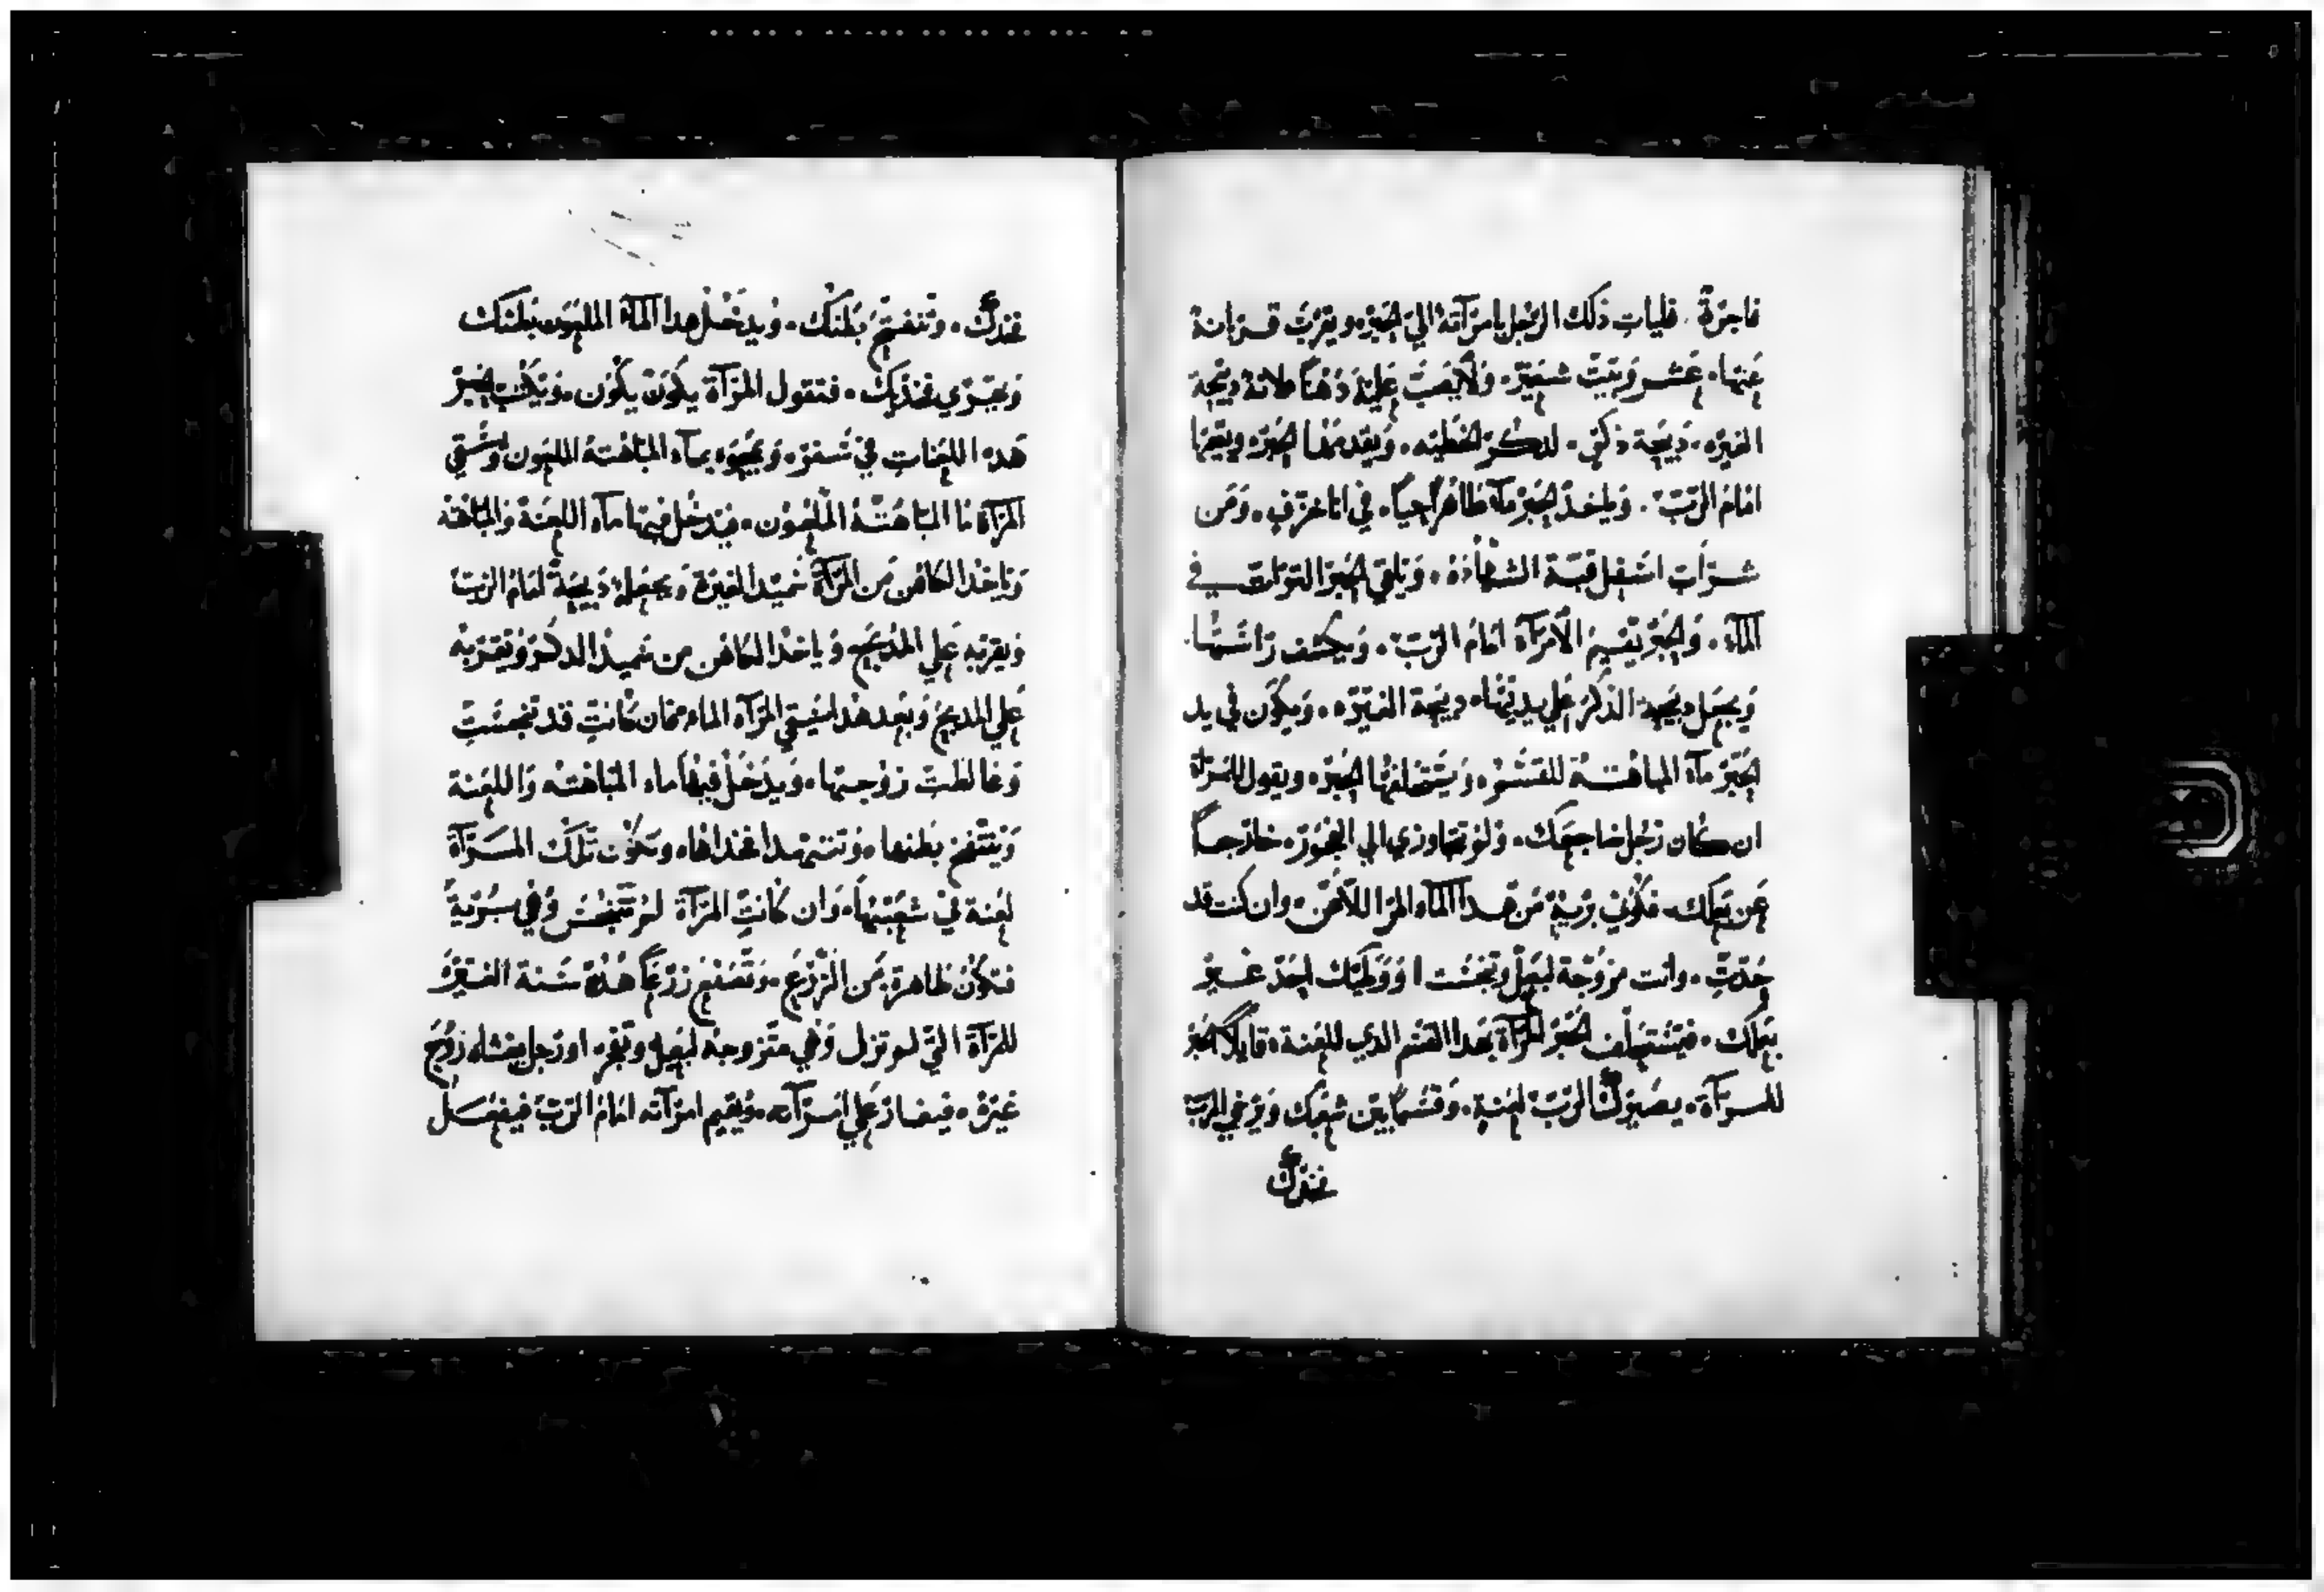 فاجرة. فليات ذلك الرجل بامرآته الي الحبر. ويقرب قربانه
عنها. عشر ويبت شعير. ولا يصب عليه دهنًا. لانه ديجة
الغيره. ديجة ذكري. لدكر الخطيه. ويقدمها الحبر. ويقيمها
امام الرب. وياخذ الحبر مآء طاهراً حياً. في انا خزف. ومن
تراب اسفل قبة الشهادة. ويلقي الحبر التراب في
المآء. والحبر يقيم الامرآة امام الرب. ويكشف راسها.
ويجعل ديجة الذكر علي يديها. ديجة الغيره. ويكون في يد
الحبر مآء المباهتة للقسم. ويستحلفها الحبر. ويقول للمرآة
ان كان رجل ضاجعك. ولم تجاوزي الي الفجور. خارجاً
عن بعلك. فكوني برية من هدا المآء المر اللاعن. وان كنت قد
حدت. وانت مزوجة لبعل وتنجست او وطيك احد غير
بعلك. فيستحلف الحبر المرآة بهدا القسم الدي للعنة. قايلاً الحبر
للمرآة. يصيرك الرب لعنة. وقسماً بين شعبك ويرخي الرب
فخذك
فخذك. وتنفتح بطنك. ويدخل هدا المآء الملعون بطنك
ويجزي فخذيك. فتقول المرآة يكون يكون. ويكتب الحبر
هده اللعنات في سفر. ويمحوه بمآء المباهتة الملعون وتسقي
المرآة ما المباهتة الملعون. فيدخل فيها مآء اللعنة والمباهتة
وياخذ الكاهن من المرآة سميد الغيرة ويجعله ديجة امام الرب
ويقربه علي المدبح وياخذ الكاهن من سميد الدكر ويقربه
علي المدبح وبعد هدا تسقي المرآه الماء فان كانت قد تنجست
وغالطت زوجها. ويدخل فيها ماء المباهته واللعنة
وينتفخ بطنها. وتنهدا فخداها. وتكون تلك المرآة
لعنة في شعبها. وان كانت المرآة لم تتنجس وهي برية
فتكون طاهرة من الزرع. وتصنع زرعاً هذه سنة الغيره
للمرآة التي لم تزل وهي متزوجة لبعل وتفجر. او رجل يغشاه روح
غيرة. فيغار علي امرآته. ويقيم امرآته امام الرب فيفعل